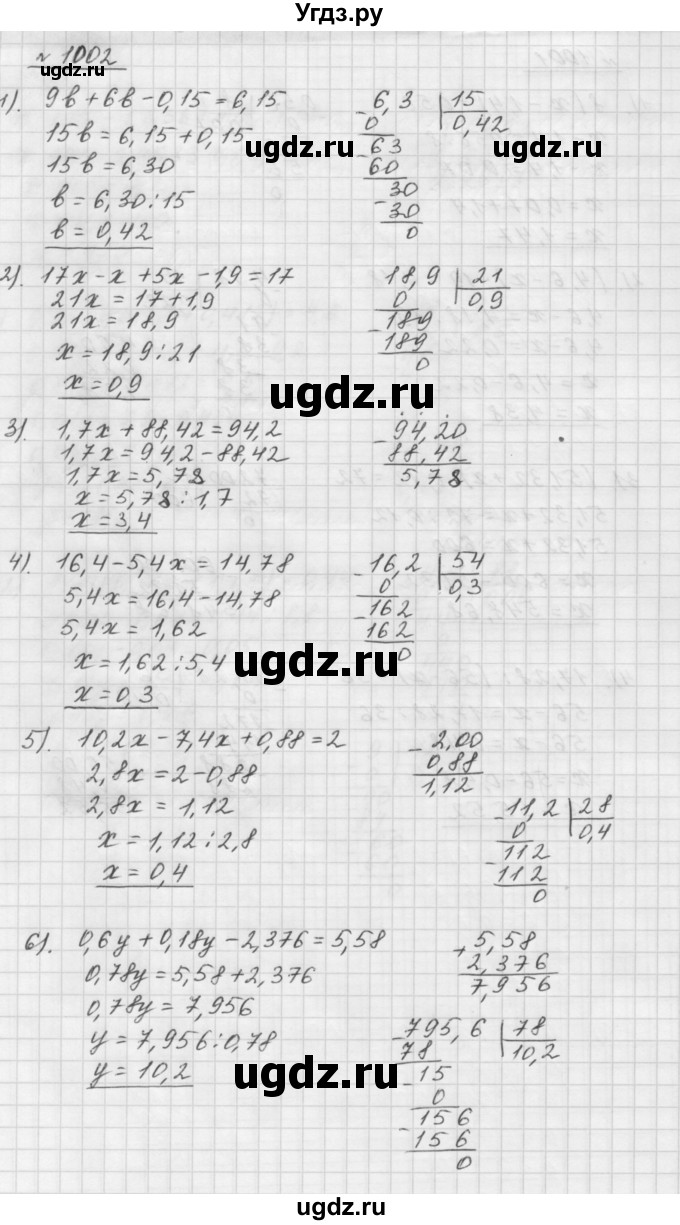 Угдз.ру
№ 1002
1). 9в+6в-0,15=6,15
15в=6,15+0,15
15в=6,30
в=6,30:15
в=0,42
6,3 15
0 0,42
63
60
30
30
0
2). 17x-x+5x-1,9=17
21x=17+1,9
21x=18,9
x=18,9:21
x=0,9
18,9 21
0 0,9
189
189
0
3). 1,7x+88,42=94,2
1,7x=94,2-88,42
1,7x=5,78
x=5,78:1,7
x=3,4
94,20
88,42
5,78
4). 16,4-5,4x=14,78
5,4x=16,4-14,78
5,4x=1,62
x=1,62:5,4
x=0,3
16,2 54
0 0,3
162
162
0
5). 10,2x-7,4x+0,88=2
2,8x=2-0,88
2,8x=1,12
x=1,12:2,8
x=0,4
2,00
0,88
1,12
11,2 28
0 0,4
112
112
0
6). 0,6y+0,18y-2,376=5,58
0,78y=5,58+2,376
0,78y=7,956
y=7,956:0,78
y=10,2
5,58
2,376
7,956
795,6 78
78 10,2
15
0
156
156
0
ugdz.ru
ugdz.ru
ugdz.ru
ugdz.ru
ugdz.ru
ugdz.ru
ugdz.ru
ugdz.ru
ugdz.ru
ugdz.ru